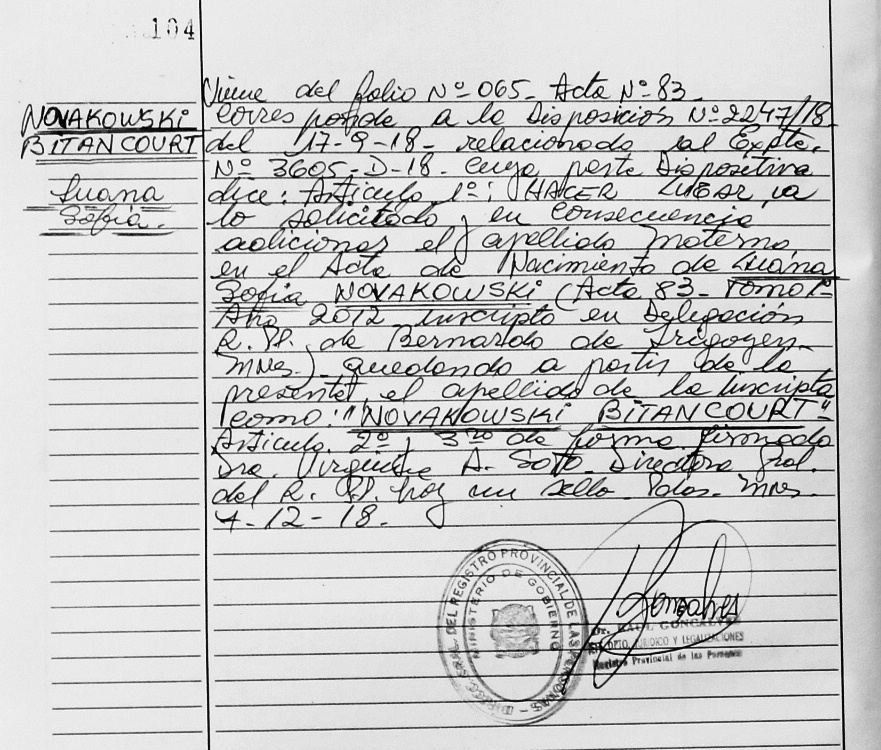 104
NOVAKOWSKI
BITANCOURT
Luana
Sofia.
Viene del folio Nº 065- Acta Nº 83-
Corresponde a la Disposición Nº 2247/18
del 17-9-18- relacionado al Expte.
Nº 3605-D-18- cuya parte Dispositiva
dice: Articulo 1º: HACER LUGAR, a
lo solicitado y en consecuencia
adicionar el apellido Materno
en el Acta de Nacimiento de Luana
Sofia NOVAKOWSKI (Acta 83- Tomo 1º
Año 2012 Inscripta en Delegación
R. P. de Bernardo de Irigoyen-
Mnes.) quedando a partir de la
presente, el apellido de la Inscripta
como: "NOVAKOWSKI BITANCOURT"
Articulo 2º y 3ro de forma firmado
Dra. Virginia A. Soto Directora Gral.
del R. P. hay un sello- Pdas. Mnes-
4-12-18-
DIRECC. GRAL. DEL REGISTRO PROVINCIAL DE LAS PERSONAS
MINISTERIO DE GOBIERNO
Goncalves
Dr. RAUL GONCALVES
DPTO. JURIDICO Y LEGALIZACIONES
Registro Provincial de las Personas